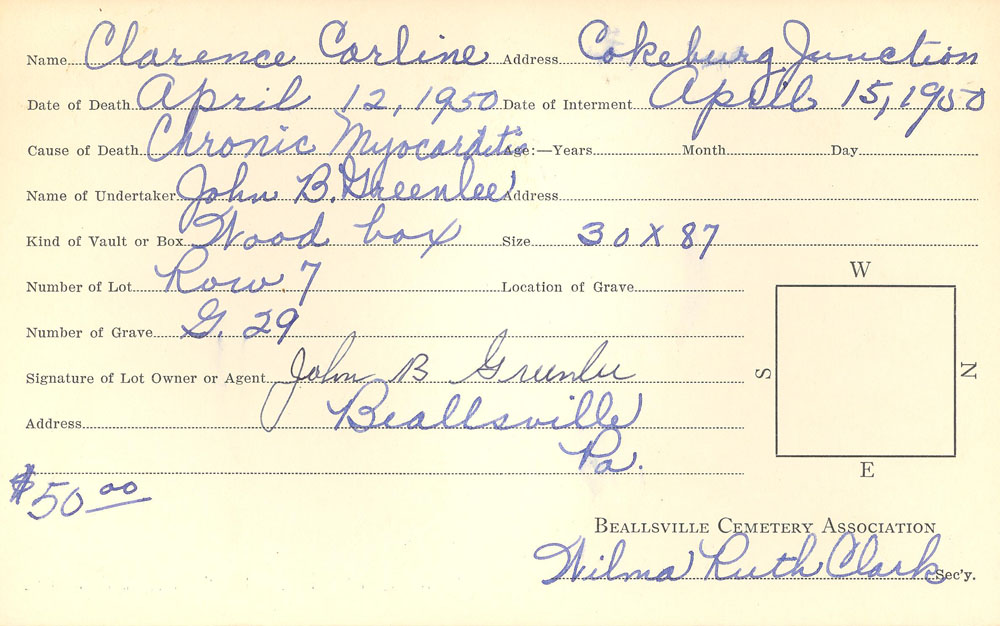 Name Clarence Carline Address Cokeburg Junction
Date of Death April 12, 1950 Date of Interment April 15, 1950
Cause of Death Chronic Myocarditis Age:—Years Month Day
Name of Undertaker John B. Greenlee Address
Kind of Vault or Box Wood box Size 30 X 87
Number of Lot Row 7 Location of Grave
W
Number of Grave G. 29
Signature of Lot Owner or Agent John B Greenlee
S N
Address Beallsville
Pa.
E
$50.00
BEALLSVILLE CEMETERY ASSOCIATION
Wilma Ruth Clark Sec'y.